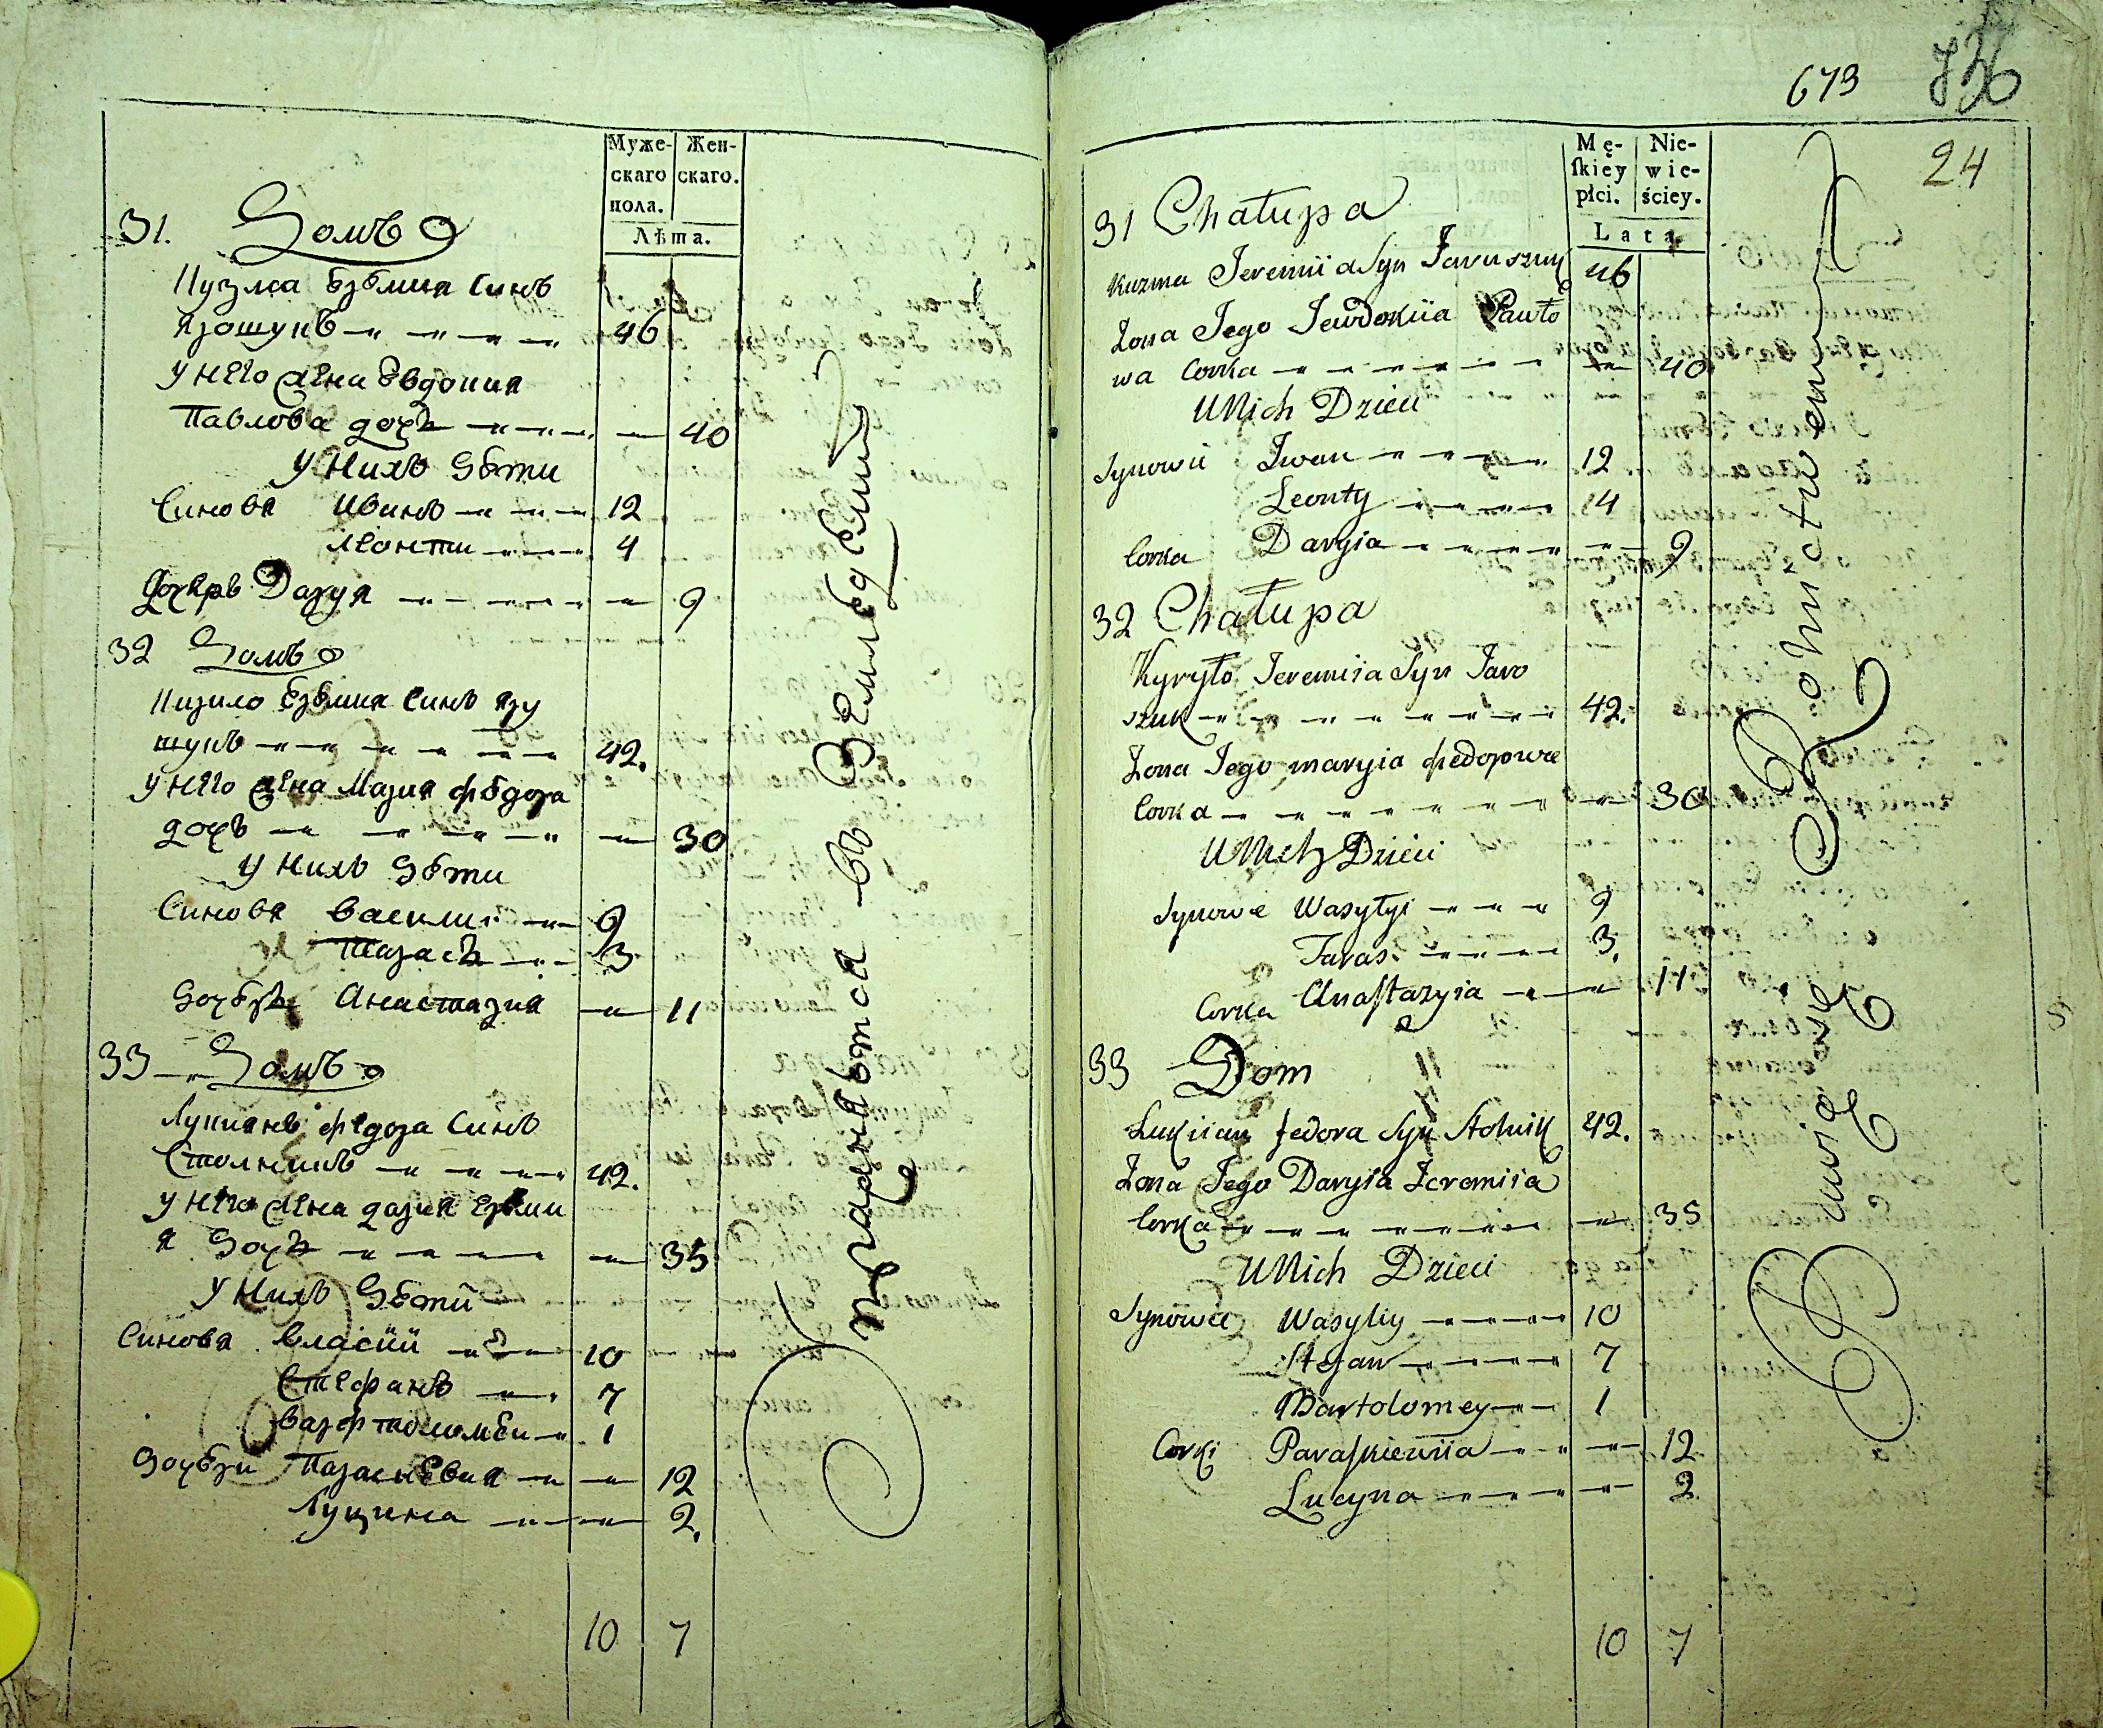 Муже-
скаго
пола.
Жен-
скаго.
Лѣта.
31. Домъ
Кузма Ереміи Синъ
Ярошукъ 46
У него жена Евдокия
Павлова дочъ 40
У нихъ Дѣти
Синовя Иванъ 12
Леонти 4
Дочеръ Даря 9
32 Домъ
Кирило Еремия Синъ Яру
шукъ 42.
У него жена Мария Федора
дочъ 30
У нихъ Дѣти
Синовя Василии 9
Тарасъ 3
Дочеръ Анастазия 11
33 Домъ
Лукиянъ Федора Синъ
Столникъ 42.
У него жена Дария Ереми
я Дочъ 35
У нихъ Дѣти
Синовя Власій 10
Стефанъ 7
Варфтоломеи 1
Дочери Параскевия 12
Луцина 2.
10 7
в Земледелии
673
736
24
Mę-
ſkiey
płci.
Nie-
wie-
ściey.
Lata.
31 Chałupa
Kuzma Jeremii a Syn Jaruszuk 46
Żona Jego Jewdokiia Pawło
wa Corka 40
U Nich Dzieci
Synowie Iwan 12
Leonty 14
Corka Daryia 9
32 Chałupa
Kyryło Jeremiia Syn Jaro
szuk 42.
Żona Jego maryia Fedorowa
Corka 30
U Nich Dzieci
Synowie Wasyłyi 9
Taras 3.
Corka Anaſtazyia 11
33 Dom
Lukiian fedora Syn Stolnik 42.
Żona Jego Daryia Jeremiia
Corka 35
U Nich Dzieci
Synowie Wasyliy 10
Stefan 7
Bartolomey 1
Corki Paraſkiewiia 12
Lucyna 2
10 7
Rolnictwem